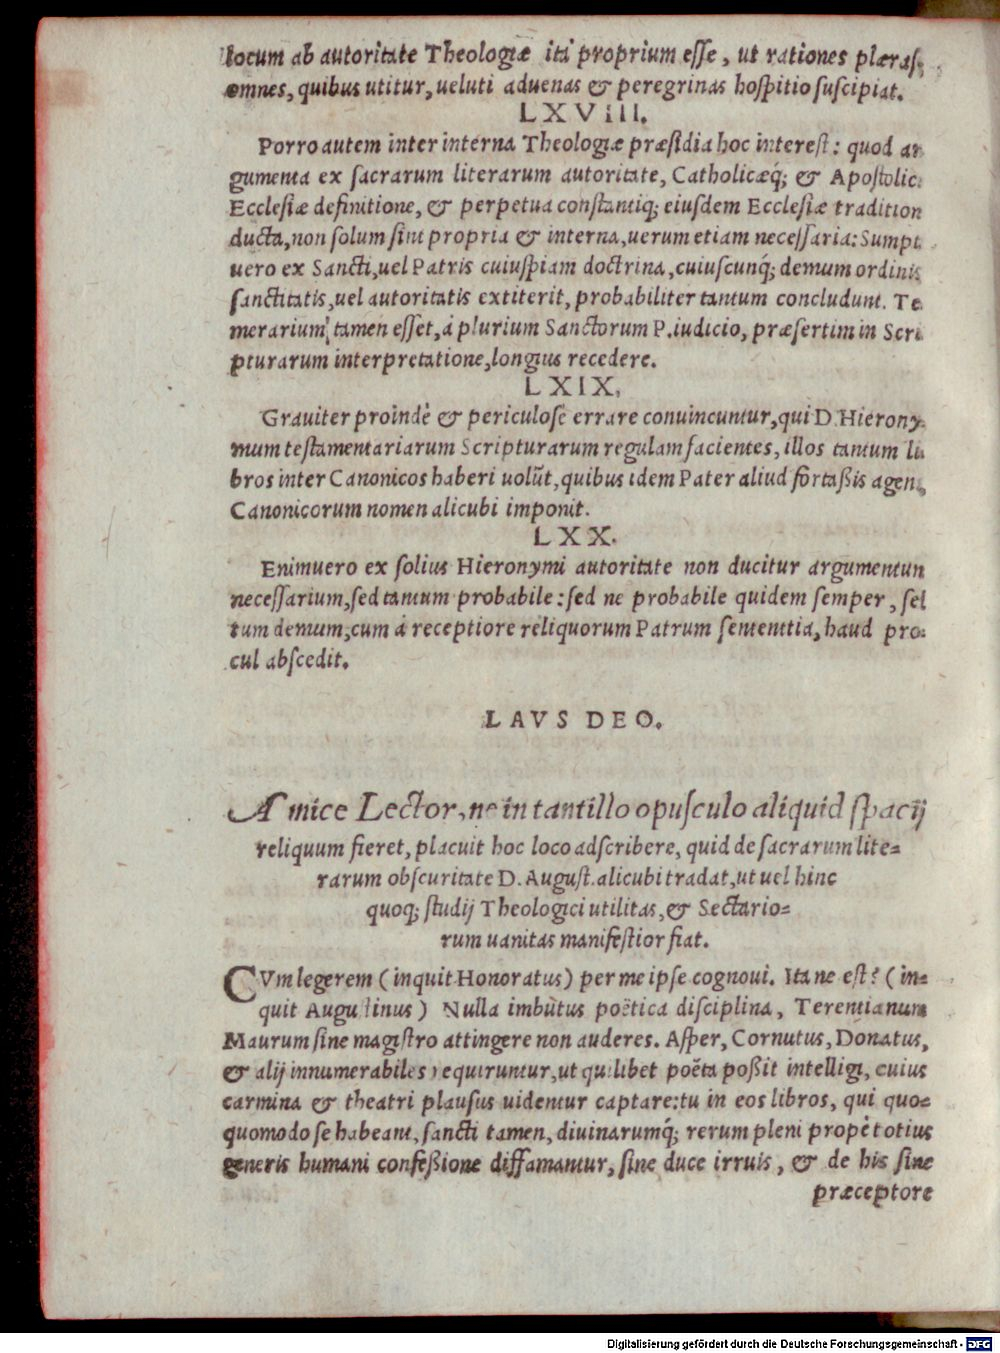 locum ab autoritate Theologiæ ita proprium esse, ut rationes plæras,
omnes, quibus utitur, ueluti aduenas & peregrinas hospitio suscipiat.
LXVIII.
Porro autem inter interna Theologiæ præsidia hoc interest: quod ar
gumenta ex sacrarum literarum autoritate, Catholicæq́; & Apostolic
Ecclesiæ definitione, & perpetua constantiq; eiusdem Ecclesiæ tradition
ducta, non solum sint propria & interna, uerum etiam necessaria: Sumpt
uero ex Sancti, uel Patris cuiuspiam doctrina, cuiuscunq́; demum ordinis
sanctitatis, uel autoritatis extiterit, probabiliter tantum concludunt. Te
merarium tamen esset, à plurium Sanctorum P. iudicio, præsertim in Scri
pturarum interpretatione, longius recedere.
LXIX.
Grauiter proindè & periculosè errare conuincuntur, qui D. Hierony
mum testamentariarum Scripturarum regulam facientes, illos tantum li
bros inter Canonicos haberi uolūt, quibus idem Pater aliud fortaßis agens,
Canonicorum nomen alicubi imponit.
LXX.
Enimuero ex solius Hieronymi autoritate non ducitur argumentum
necessarium, sed tantum probabile: sed ne probabile quidem semper, sed
tum demum, cum à receptiore reliquorum Patrum sementtia, haud pro-
cul abscedit.
LAVS DEO.
Amice Lector, ne in tantillo opusculo aliquid spacij
reliquum fieret, placuit hoc loco adscribere, quid de sacrarum lite=
rarum obscuritate D. August. alicubi tradat, ut uel hinc
quoq; studij Theologici utilitas, & Sectario=
rum uanitas manifestior fiat.
CVm legerem (inquit Honoratus) per me ipse cognoui. Ita ne est? (in=
quit Augustinus) Nulla imbutus poëtica disciplina, Terentianum
Maurum sine magistro attingere non auderes. Asper, Cornutus, Donatus,
& alij innumerabiles requiruntur, ut quilibet poëta poßit intelligi, cuius
carmina & theatri plausus uidentur captare: tu in eos libros, qui quo=
quomodo se habeant, sancti tamen, diuinarumq́; rerum pleni propè totius
generis humani confeßione diffamantur, sine duce irruis, & de his sine
præceptore
Digitalisierung gefördert durch die Deutsche Forschungsgemeinschaft - DFG